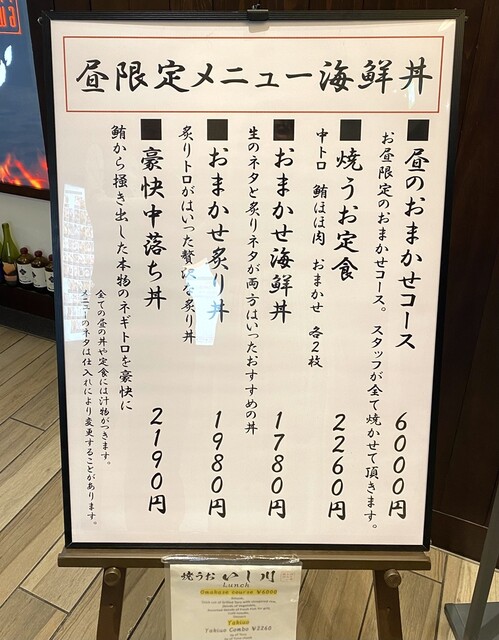 昼限定メニュー海鮮丼
■昼のおまかせコース 6000円
お昼限定のおまかせコース。スタッフが全て焼かせて頂きます。
■焼うお定食 2260円
中トロ 鮪ほほ肉 おまかせ 各2枚
■おまかせ海鮮丼 1780円
生のネタと炙りネタが両方はいったおすすめの丼
■おまかせ炙り丼 1980円
炙りトロがはいった贅沢な炙り丼
■豪快中落ち丼 2190円
鮪から掻き出した本物のネギトロを豪快に
全ての昼の丼や定食には汁物がつきます。
メニューのネタは仕入れにより変更することがあります。
焼うお いし川
Lunch
Omakase course ¥6000
Yakiuo
Yakiuo Combo ¥2260